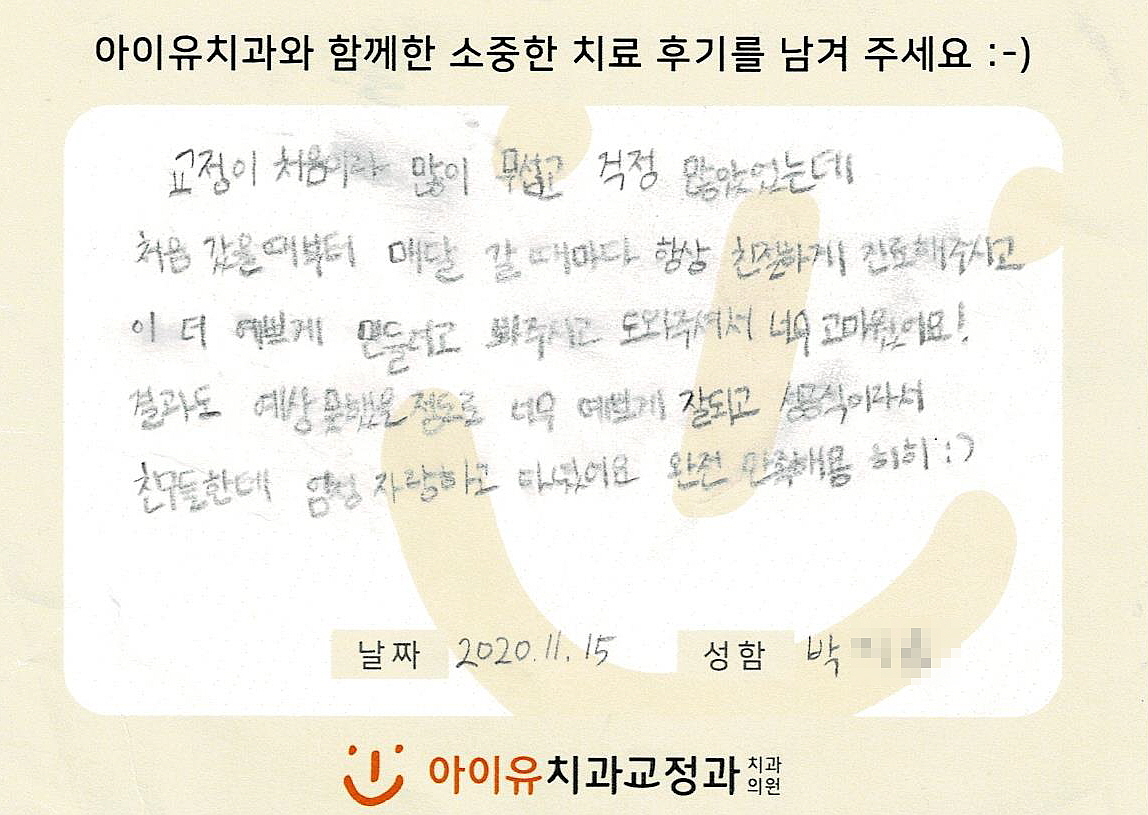 아이유치과와 함께한 소중한 치료 후기를 남겨 주세요 :-)
교정이 처음이라 많이 무섭고 걱정 많았었는데
처음 갔을때부터 매달 갈 때마다 항상 친절하게 진료해주시고
이 더 예쁘게 만들려고 봐주시고 도와주셔서 너무 고마웠어요!
결과도 예상 못했을 정도로 너무 예쁘게 잘되고 성공식이라서
친구들한데 엄청 자랑하고 다녔어요 완전 만족해용 히히 :)
날짜 2020.11.15 성함 박
아이유치과교정과 치과의원